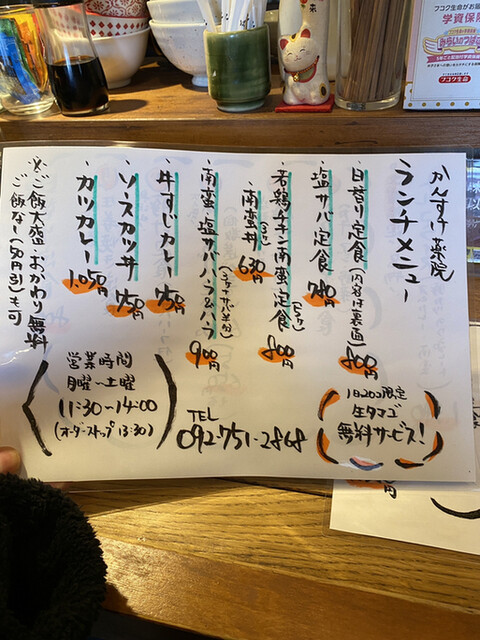 かんすけ薬院
ランチメニュー
・日替り定食(内容は裏面) 800円
・塩サバ定食 780円
・若鶏チキン南蛮定食(5コ) 800円
・南蛮丼(3コ) 630円
・南蛮・塩サバハーフ&ハーフ 900円
・牛すじカレー 950円
・ソースカツ丼 950円
・カツカレー 1.050円
※ご飯大盛・おかわり無料
ご飯なし(50円引)も可
1日20コ限定
生タマゴ
無料サービス!
TEL
092-751-2868
営業時間
月曜〜土曜
11:30〜14:00
(オーダーストップ13:30)
フコク生命がお届
学資保険
みらいのつばさ
フコク生命